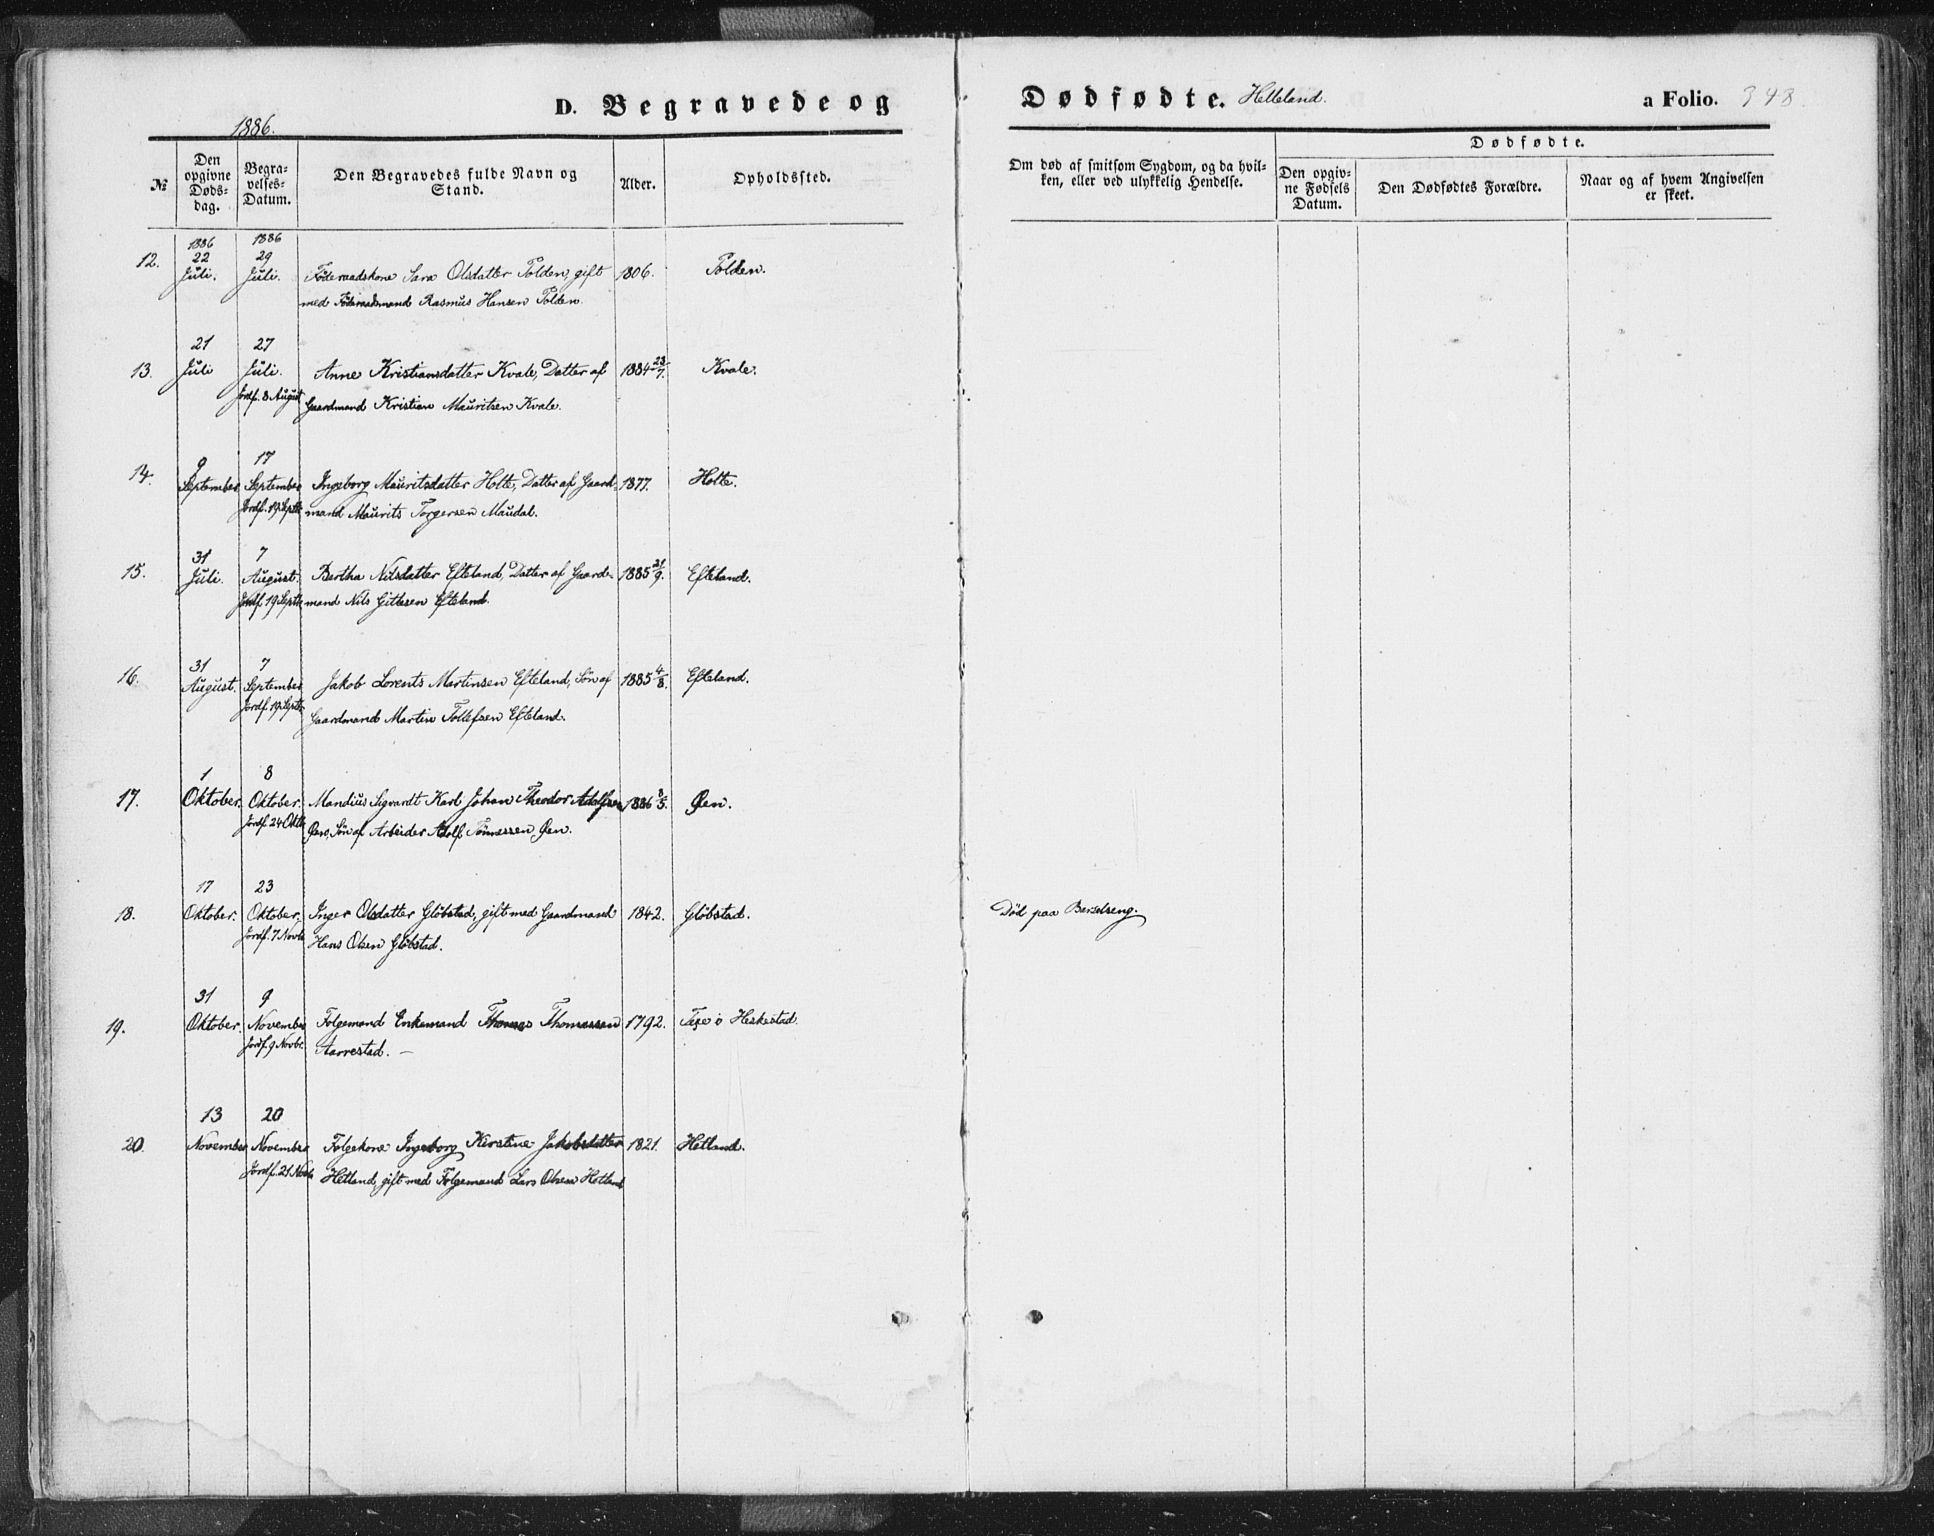 D. Begravede og Dødfødte. Helleland. a Folio. 348.
1886.
№
Den opgivne Døds-dag.
Begra-velses-Datum.
Den Begravedes fulde Navn og Stand.
Alder.
Opholdssted.
Om død af smitsom Sygdom, og da hvil-
ken, eller ved ulykkelig Hendelse.
Dødfødte.
Den opgiv-ne Fødsels Datum.
Den Dødfødtes Forældre.
Naar og af hvem Angivelsen
er skeet.
1886 1886
12. 22 Juli. 29 Juli. Föderaadskone Sara Olsdatter Polden, gift 1806. Polden.
med Föderaadsmand Rasmus Hansen Polden.
21 27
13. Juli Juli. Anne Kristiansdatter Kvale, Datter af 1884 23/7. Kvale.
Jordf. 8 August Gaardmand Kristian Mauritsen Kvale.
9 17
14. September September Ingeborg Mauritsdatter Holte, Datter af Gaard- 1877. Holte.
Jordf. 19 Septb mand Maurits Torgersen Maudal.
31 7
15. Juli. August. Bertha Nilsdatter Efteland, Datter af Gaard- 1885 21/9. Efteland.
Jordf. 19 Septb mand Nils Gitlesen Efteland.
31 7
16. August. September Jakob Lorents Martinsen Efteland, Søn af 1885 4/8. Efteland.
Jordf. 19 Septb Gaardmand Martin Tollefsen Efteland.
1 8
17. Oktober. Oktober. Mandius Sigvardt Karl Johan Theodor Adolfsen 1886 8/5. Øen.
Jordf. 24 Oktb Øen, Søn af Arbeider Adolf Tønnessen Øen.
17 23
18. Oktober. Oktober. Inger Olsdatter Glöbstad, gift med Gaardmand 1842. Glöbstad. Död paa
Jordf. 7 Novb Hans Olsen Glöbstad.
31 9
19. Oktober. November Folgemand Enkemand Thomas Thomassen 1792. i Heskestad.
Jordf. 9 Novbr. Aarrestad. –
13 20
20. November November Folgekone Ingeborg Kirstine Jakobsdatter 1821. Hetland.
Jordf. 21 Novb Hetland, gift med Folgemand Lars Olsen Hetland